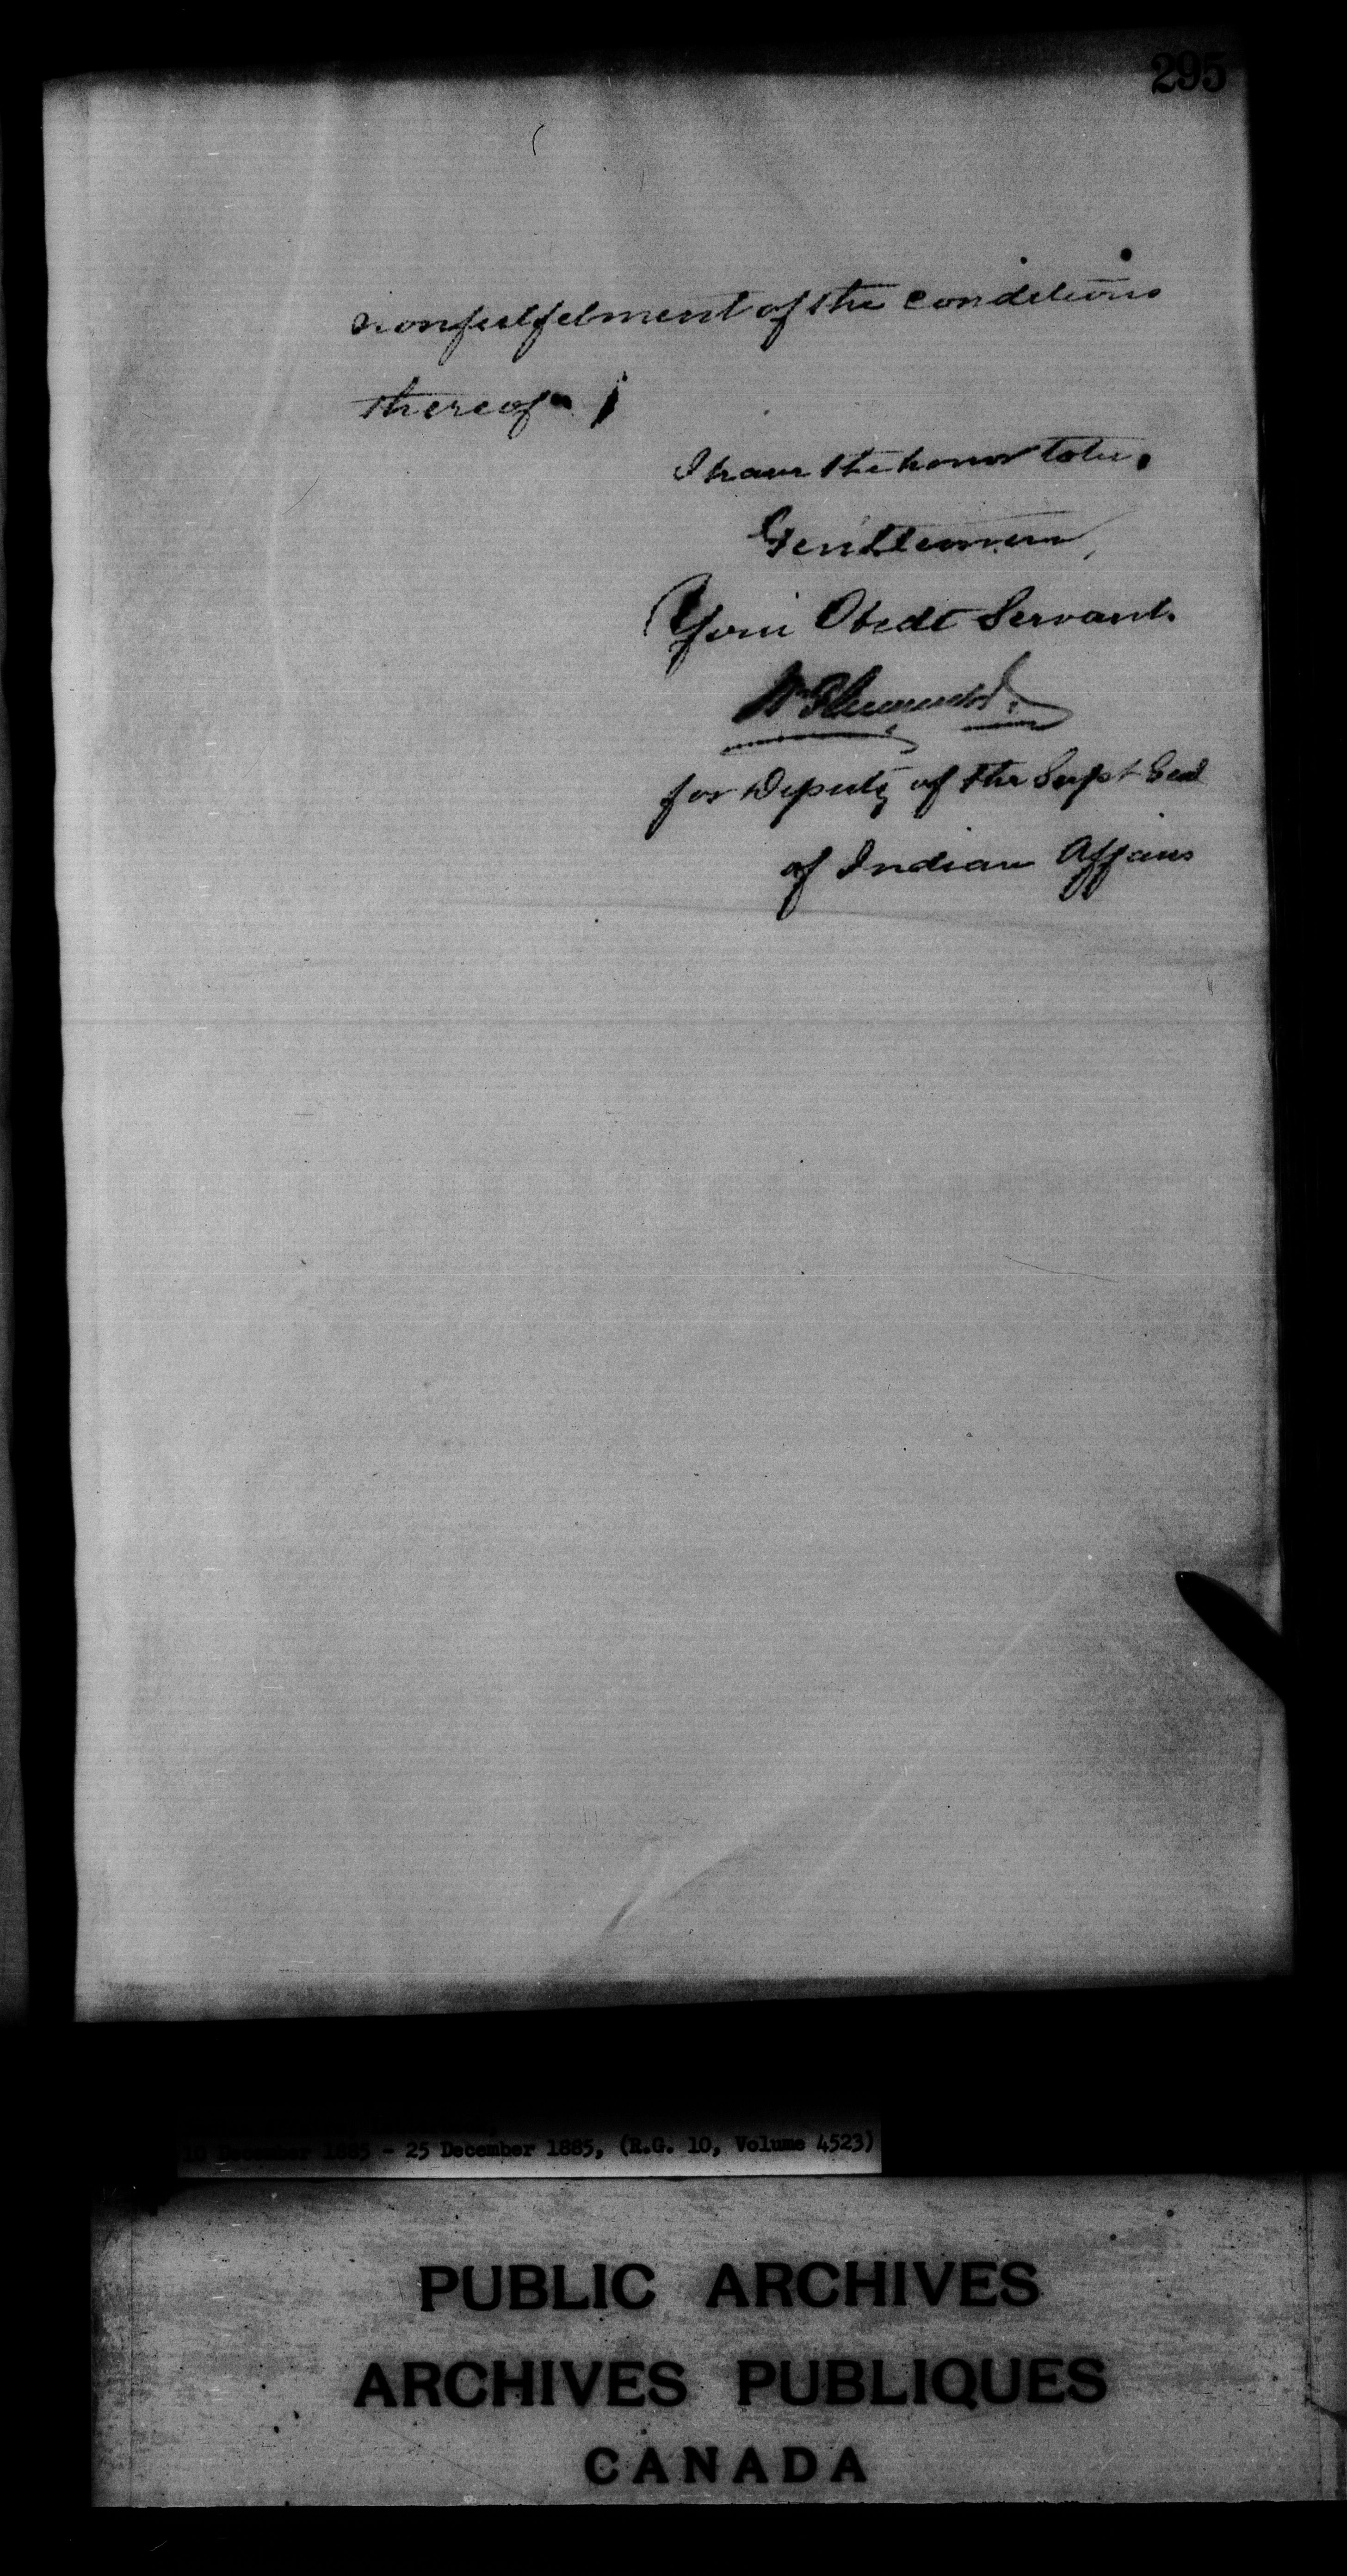 295
nonfulfilment of the conditions
thereof.
I have the honor to be,
Gentlemen,
Your Obedt Servant.
for Deputy of the Supt Genl
of Indian Affairs
10 December 1885 - 25 December 1885, (R.G. 10, Volume 4523)
PUBLIC ARCHIVES
ARCHIVES PUBLIQUES
CANADA